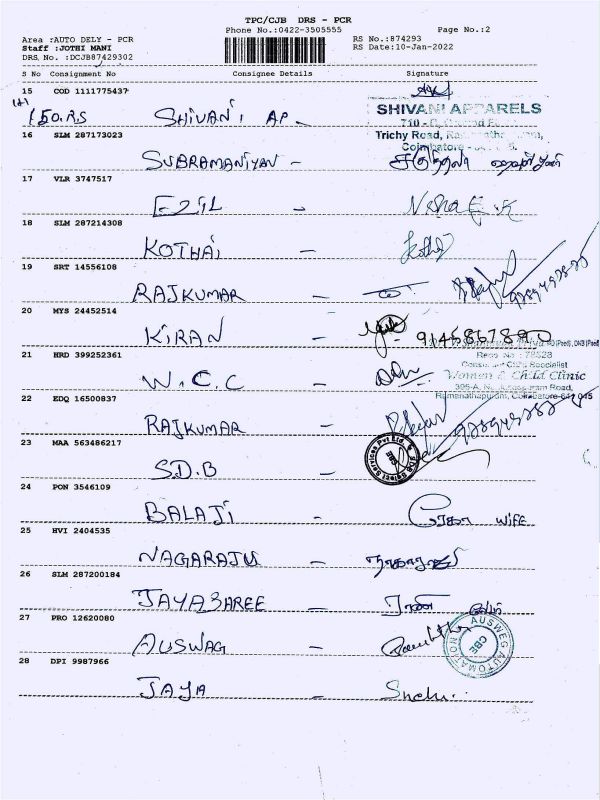 TPC/CJB DRS - PCR
Phone No.:0422-3505555 Page No.:2
Area :AUTO DELY - PCR RS No.:874293
Staff :JOTHI MANI RS Date:10-Jan-2022
DRS. No. :DCJB87429302
S No Consignment No Consignee Details Signature
15 COD 1111775437
150.RS SHIVANI AP. SHIVANI APPARELS
710 -
Trichy Road,
Coimbatore
16 SLM 287173023
SUBRAMANIYAN - சகுந்தலா
17 VLR 3747517
EZIL - Nisha
18 SLM 287214308
KOTHAI - Kothai
19 SRT 14556108
RAJKUMAR -
20 MYS 24452514
KIRAN - 9145867890
21 HRD 399252361
Regn. No : 78528
W.C.C - Women & Child Clinic
Ramanathapuram, Coimbatore-641 045
22 EDQ 16500837
RAJKUMAR -
23 MAA 563486217
S.D.B - Select Services Pvt Ltd. CBE
24 PON 3546109
BALAJI - WIFE
25 HVI 2404535
NAGARAJU - நாகராஜ்
26 SLM 287200184
JAYASAREE - ராணி
27 PRO 12620080
AUSWAG - AUSWEG AUTOMATION CBE
28 DPI 9987966
JAYA -